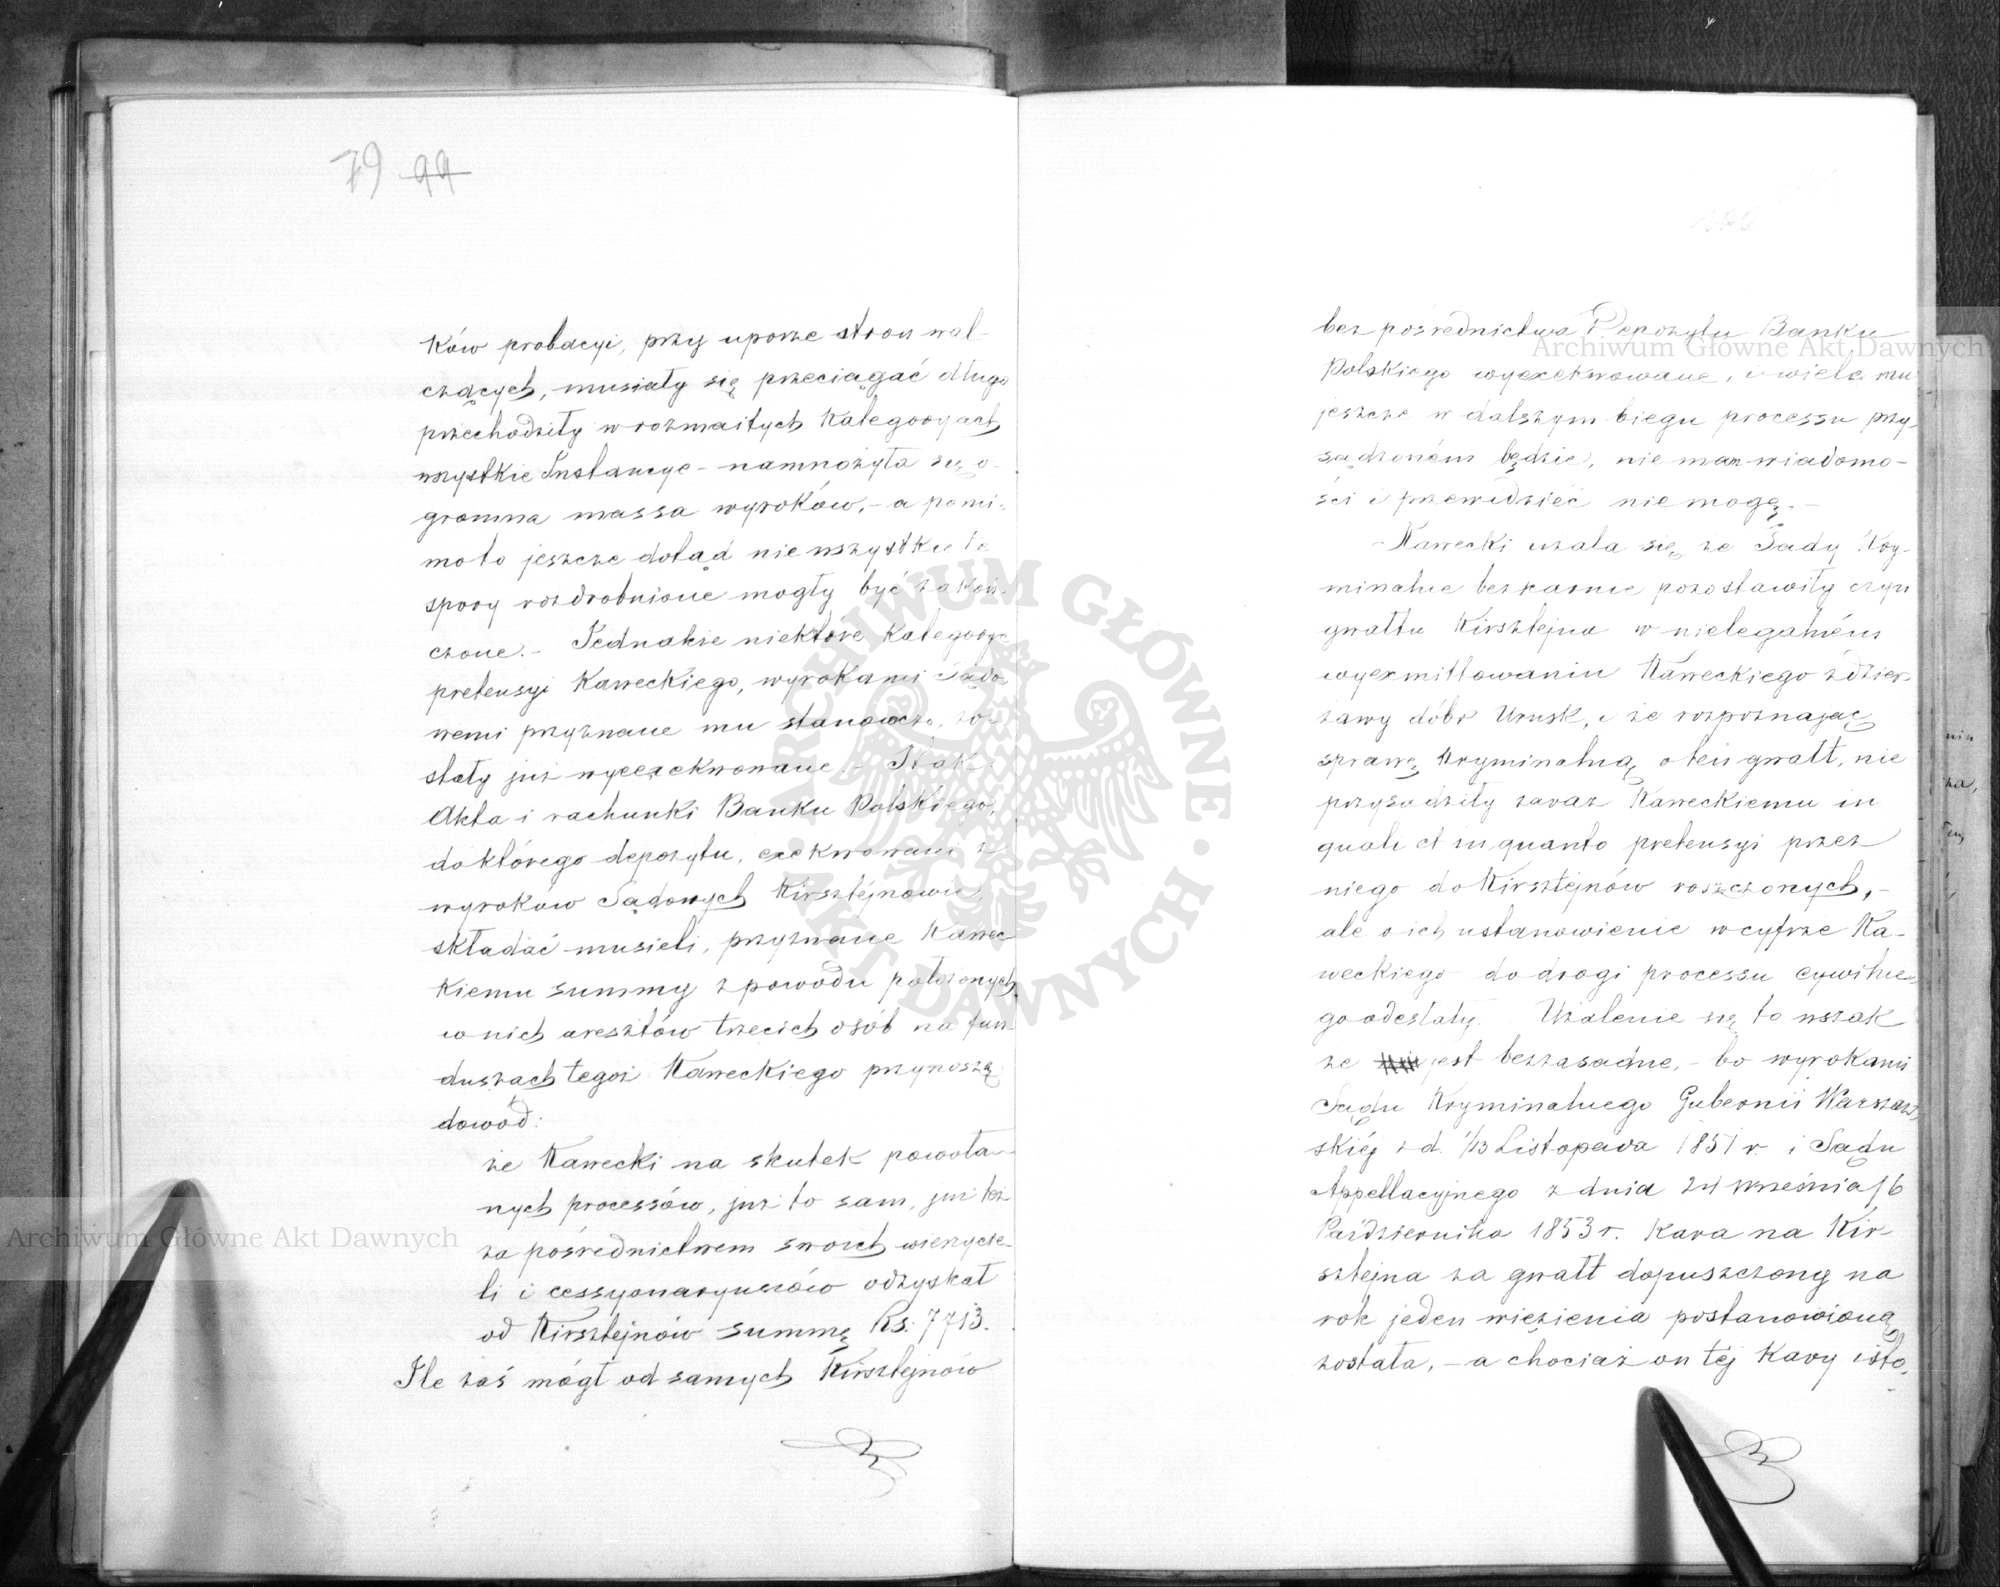 79 99
ków probacyi, przy uporze stron wal-
czących, musiały się przeciągać długo
przechodziły w rozmaitych Kategoryach
wszystkie Instancye - namnożyła się o-
gromna massa wyroków, - a pomi-
moto jeszcze dotąd nie wszystkie te
spory rozdrobnione mogły być zakoń-
czone. - Jednakże niektóre Kategorye
pretensyi Kaweckiego, wyrokami Sądo-
wemi przyznane mu stanowczo, zo-
stały już wyexekwowane. - I tak:
Akta i rachunki Banku Polskiego,
do którego depozytu, exekwowani z
wyroków Sądowych Kirsztejnowie,
składać musieli, przyznane Kawec-
kiemu summy z powodu położonych
w nich aresztów trzecich osób na fun-
duszach tegoż Kaweckiego przynoszą
dowód:
że Kawecki na skutek powoła-
nych processów, już to sam, już też
za pośrednictwem swoich wierzycie-
li i cessyonaryuszów odzyskał
od Kirsztejnów summę Rs: 7713.
Ile zaś mógł od samych Kirsztejnów
bez pośrednictwa Depozytu Banku
Polskiego wyexekwowane, i wiele mu
jeszcze w dalszym biegu processu przy-
sądzoném będzie, nie mam wiadomo-
ści i przewidzieć nie mogę. -
Kawecki użala się, że Sądy Kry-
minalne bezkarnie pozostawiły czyn
gwałtu Kirsztejna w nielegalném
wyexmittowaniu Kaweckiego z dzier-
żawy dóbr Urusk, i że rozpoznając
sprawę Kryminalną o ten gwałt, nie
przysądziły zaraz Kaweckiemu in
quali et in quanto pretensyi przez
niego do Kirsztejnów roszczonych, -
ale o ich ustanowienie w cyfrze Ka-
weckiego do drogi processu cywilne-
go odesłały. Użalenie się to wszak-
że jest bezzasadne, - bo wyrokami
Sądu Kryminalnego Gubernii Warszaw-
skiéj z d. 1/13 Listopada 1851 r. i Sądu
Appellacyjnego z dnia 24 Września/6
Października 1853 r. Kara na Kir-
sztejna za gwałt dopuszczony na
rok jeden więzienia postanowioną
została, - a chociaż on téj Kary isto-
Archiwum Główne Akt Dawnych
Archiwum Główne Akt Dawnych
ARCHIWUM GŁÓWNE AKT DAWNYCH